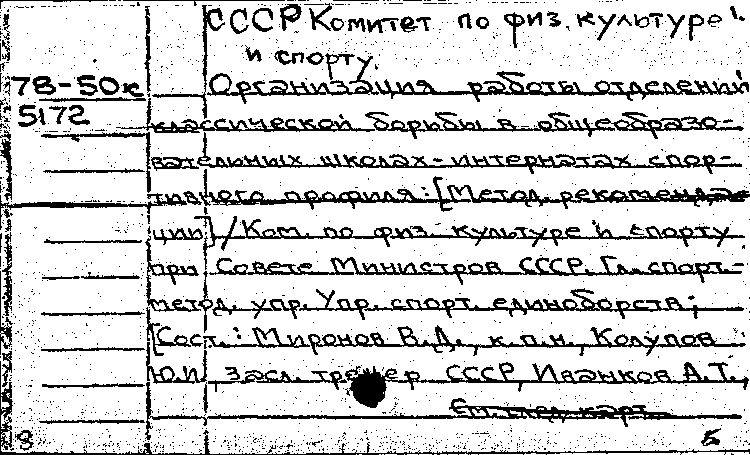 СССР Комитет по физ. культуре
и спорту.
78-50к
5172
Организация работы отделений
классической борьбы в общеобразо-
вательных школах-интернатах спор-
тивного профиля: [Метод. рекоменда-
ции] / Ком. по физ. культуре и спорту
при Совете Министров СССР. Гл. спорт.-
метод. упр. Упр. спорт. единоборств;
[Сост.: Миронов В.Д., к.п.н., Колупов
Ю.И. засл. тренер СССР, Иванков А.Т.,
8 Б